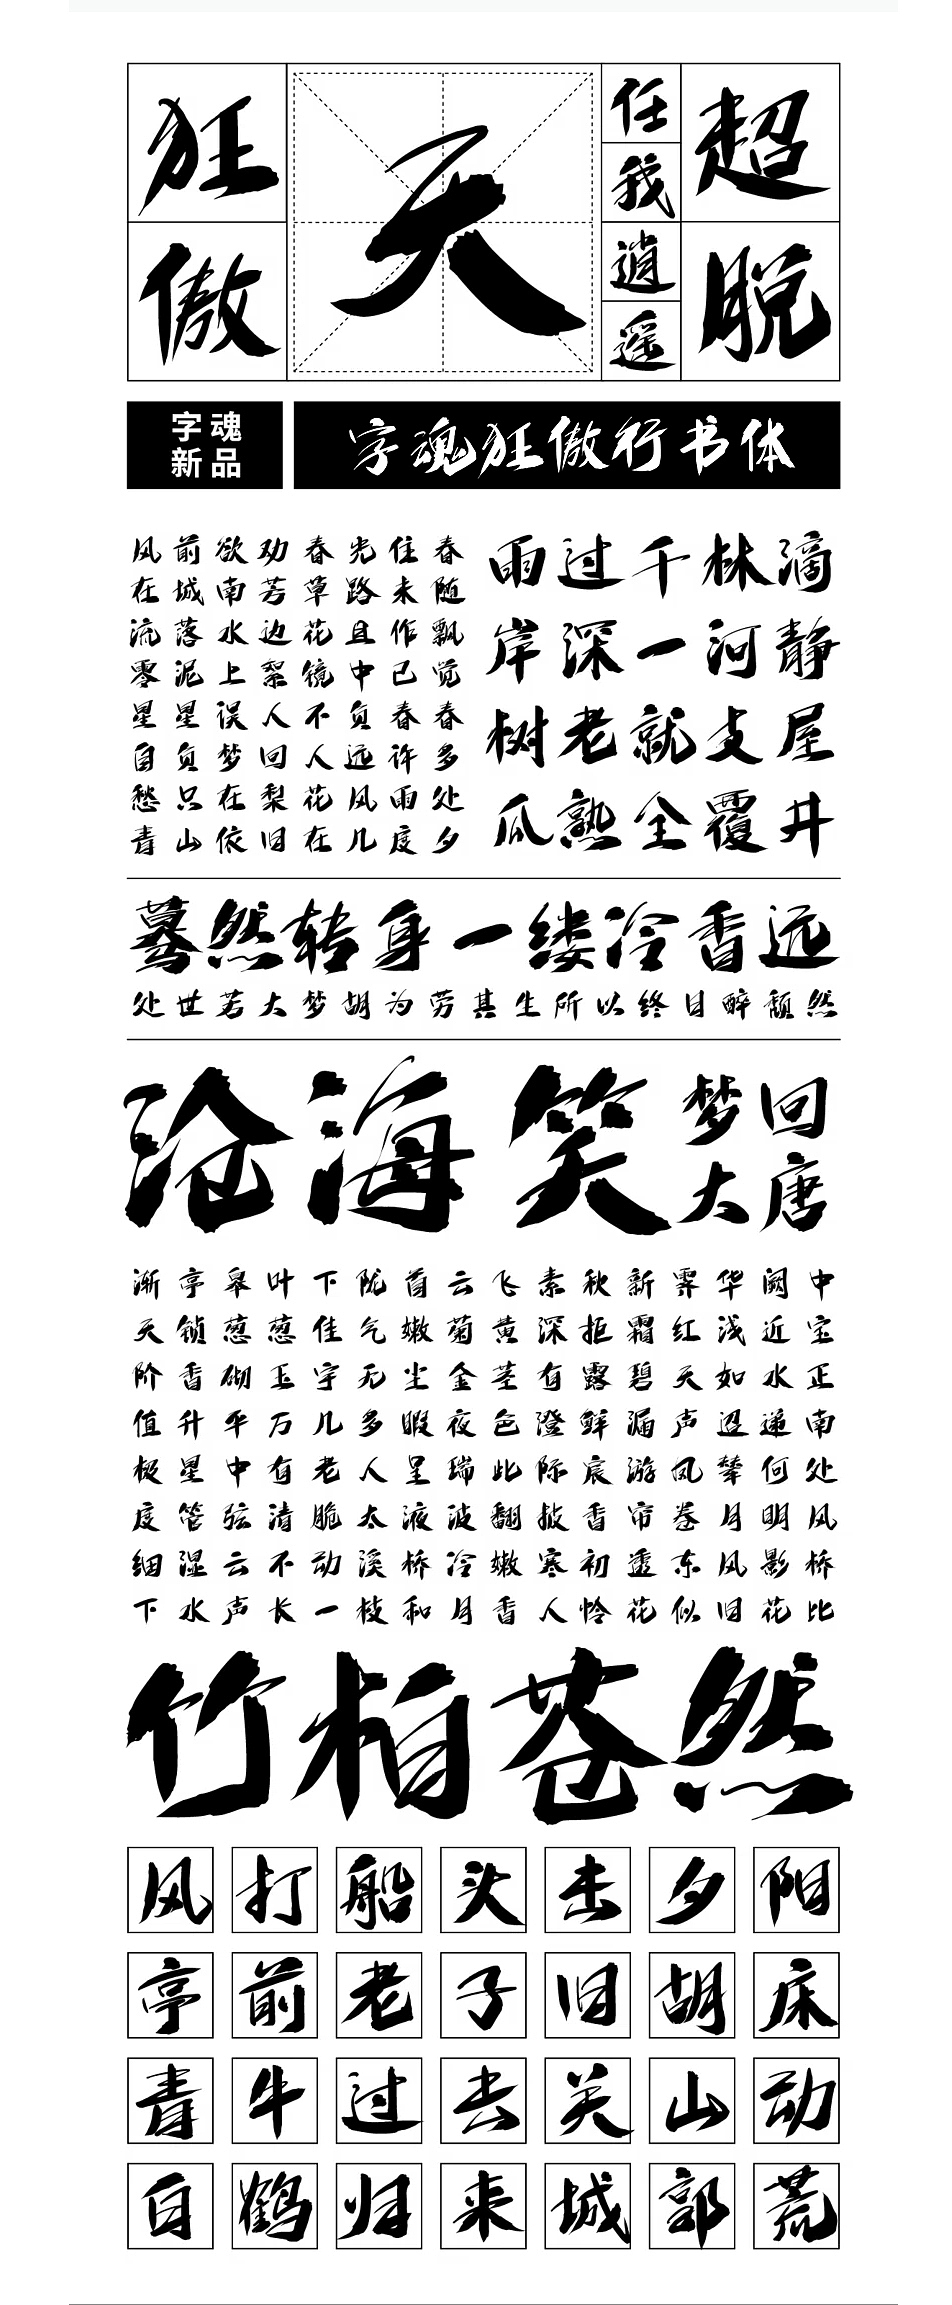 狂傲
天
任我逍遥
超脱
字魂
新品
字魂狂傲行书体
风前欲劝春光住春
在城南芳草路未随
流落水边花且作飘
零泥上絮镜中已觉
星星误人不负春春
自负梦回人远许多
愁只在梨花风雨处
青山依旧在几度夕
雨过千林滴
岸深一河静
树老就支屋
瓜熟全覆井
蓦然转身一缕冷香远
处世若大梦胡为劳其生所以终日醉颓然
沧海笑
梦回
大唐
渐亭皋叶下陇首云飞素秋新霁华阙中
天锁葱葱佳气嫩菊黄深拒霜红浅近宝
阶香砌玉宇无尘金茎有露碧天如水正
值升平万几多暇夜色澄鲜漏声迢递南
极星中有老人呈瑞此际宸游凤辇何处
度管弦清脆太液波翻披香帘卷月明风
细湿云不动溪桥冷嫩寒初透东风影桥
下水声长一枝和月香人怜花似旧花比
竹柏苍然
风打船头击夕阳
亭前老子旧胡床
青牛过去关山动
白鹤归来城郭荒